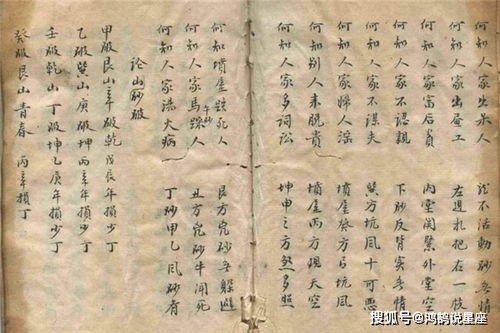 何知人家出呆人 不活動砂無情
何知人家出工 左邊扎把右一枝
何知人家富后貧 内堂関緊外堂空
何知人家不認親 下砂反背实無情
何知人家不謀夫 巽方坑風十可惡
何知人家婦人淫 墳屋癸方有坑風
何知别人来脱貴 墳屋丙方現天空
何知人家多詞訟 坤申之方煞多照
何知墳屋跌死人 艮方窕砂無躲避
何知人家馬踩人 午砂 丑方窕砂牛死
何知人家火病 丁砂甲乙風砂看
论山砂破
甲破艮山辛破乾 戊辰年損少丁
乙破巽山庚破坤 丙辛年損少丁
壬破乾山丁破坤 乙庚年損少丁
癸破艮山青春 丙辛損丁
搜狐号@鸿鹄说星座